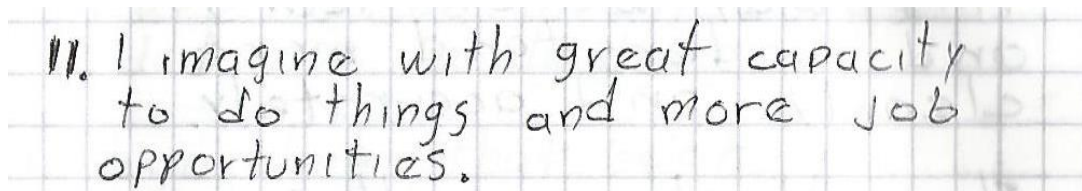 11. I imagine with great capacity
to do things and more job
opportunities.